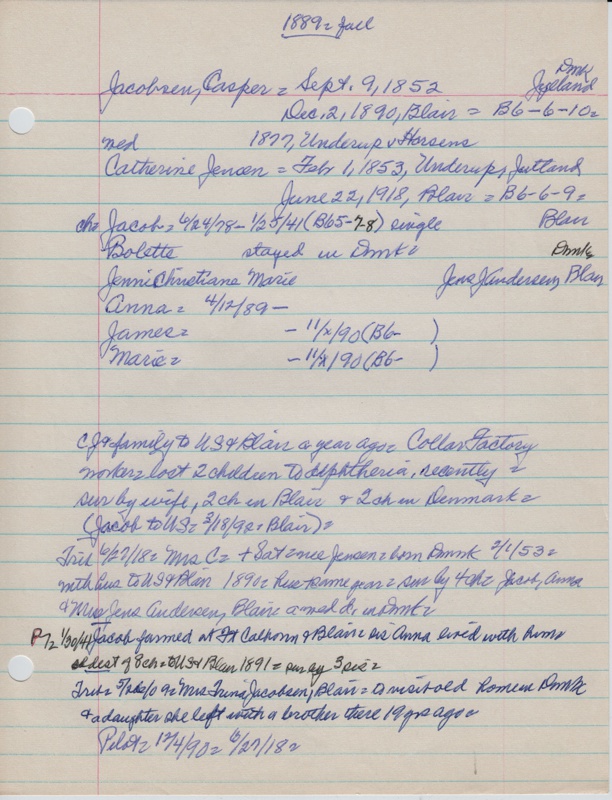 1889= fall
Dmk
Jacobsen, Casper = Sept. 9, 1852 Jyeland
Dec. 2, 1890, Blair = B6-6-10=
med 1877, Underup v Horsens
Catherine Jensen = Febr 1, 1853, Underup, Jutland
June 22, 1918, Blair = B6-6-9=
ch= Jacob = 4/24/78- 1/25/41 (B65-7-8) single Blair
Bolette stayed in Dmk= Dmk
Jenni Christiane Marie Jens Andersen, Blair
Anna = 4/12/89-
James= - 11/x/90 (B6- )
Marie= - 11/x/90 (B6- )
CJ & family to US & Blair a year ago= Collar Factory
worker= lost 2 children to diphtheria, recently =
sur by wife, 2 ch in Blair & 2 ch in Denmark=
(Jacob to US= 3/18/90= Blair)=
Trib 6/27/18= Mrs C= + Sat= nee Jensen= born Dmk 2/1/53=
with hus to US & Blair 1890= hus + same year= sur by 4 ch= Jacob, Anna
& Mrs Jens Andersen, Blair= a med d. in Dmk=
P 1/2 1/30/41 Jacob farmed at Ft Calhoun & Blair= sis Anna lived with him=
oldest of 8 ch= to US & Blair 1891= sur by 3 sis=
Trib= 5/ /09= Mrs Trina Jacobsen, Blair= to visit old home in Dmk
& a daughter she left with a brother there 19 yrs ago=
Pilot= 12/4/90= 6/27/18=